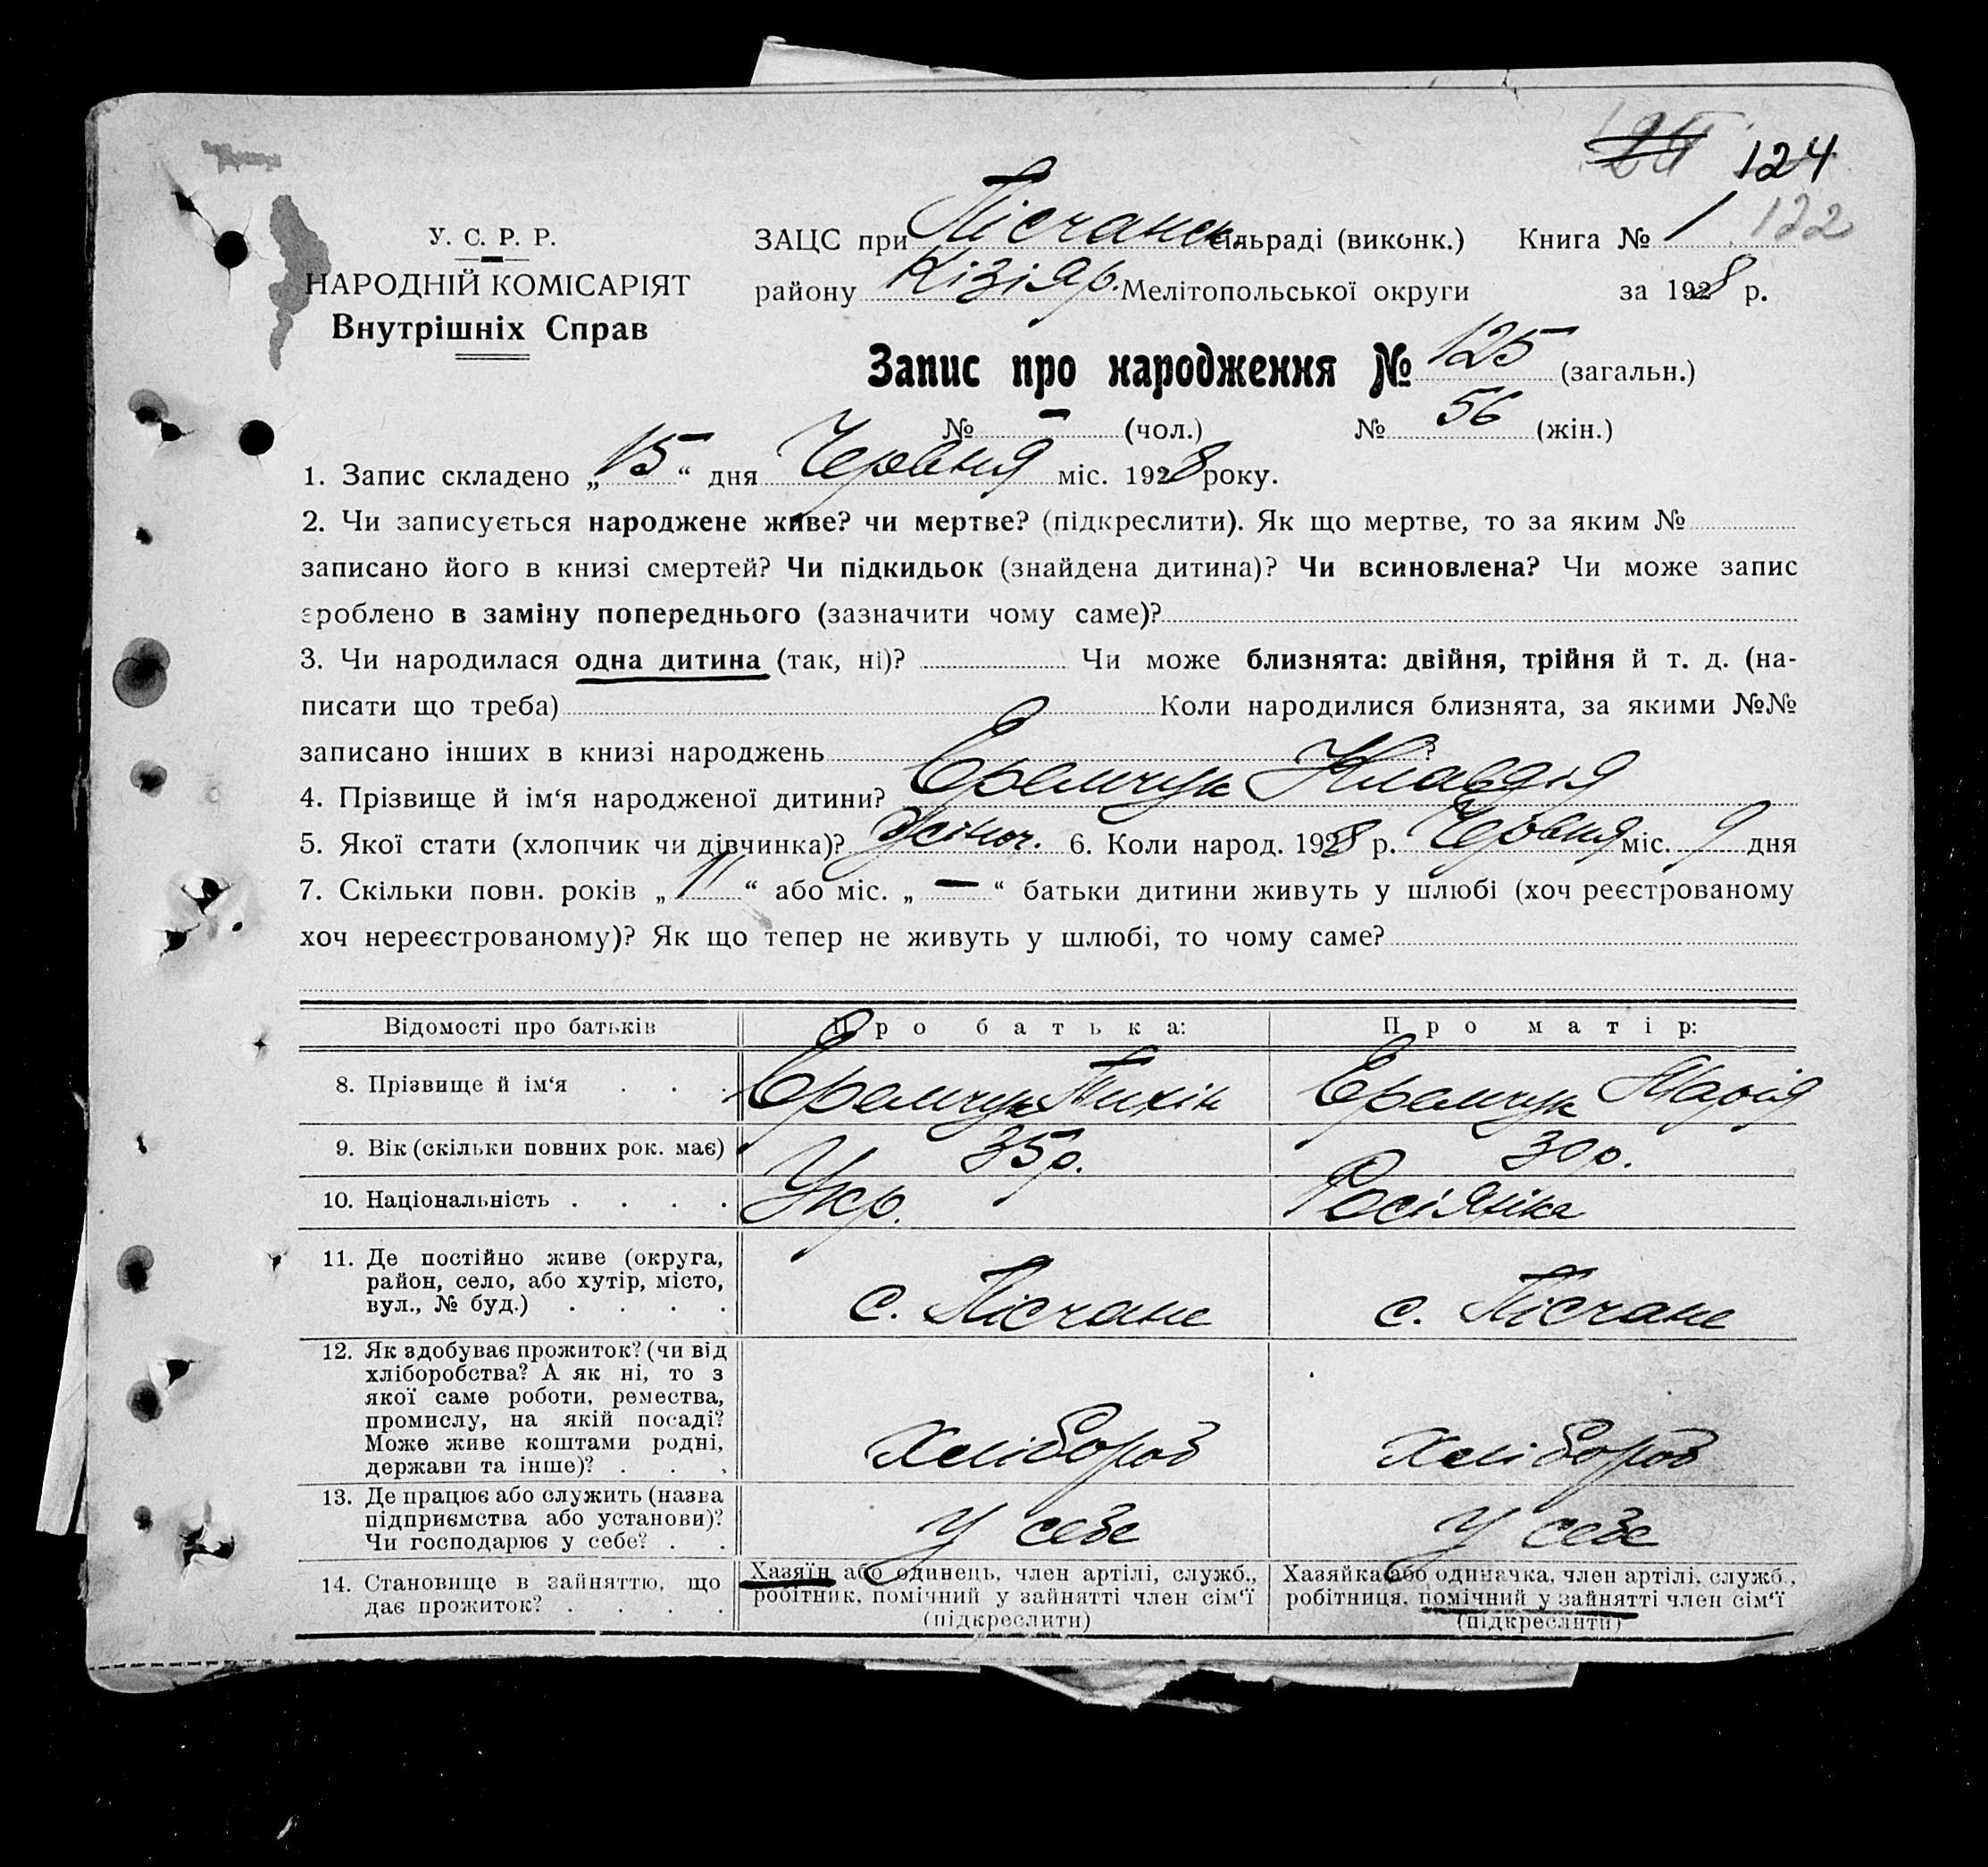 124
У. С. Р. Р.
НАРОДНІЙ КОМІСАРІЯТ
Внутрішніх Справ
ЗАЦС при Пісчанск. сільраді (виконк.) Книга № 1 122
району Кізіяр. Мелітопольської округи за 1928 р.
Запис про народження № 125 (загальн.)
№ — (чол.) № 56 (жін.)
1. Запис складено „15“ дня Червня міс. 1928 року.
2. Чи записується народжене живе? чи мертве? (підкреслити). Як що мертве, то за яким №
записано його в книзі смертей? Чи підкидьок (знайдена дитина)? Чи всиновлена? Чи може запис
зроблено в заміну попереднього (зазначити чому саме)?
3. Чи народилася одна дитина (так, ні)? Чи може близнята: двійня, трійня й т. д. (на-
писати що треба) Коли народилися близнята, за якими №№
записано інших в книзі народжень ?
4. Прізвище й ім‘я народженої дитини? Єремчук Клавдія
5. Якої стати (хлопчик чи дівчинка)? Жіноч. 6. Коли народ. 1928 р. Червня міс. 9 дня
7. Скільки повн. років „11“ або міс. „—“ батьки дитини живуть у шлюбі (хоч реєстрованому
хоч нереєстрованому)? Як що тепер не живуть у шлюбі, то чому саме?
Відомості про батьків Про батька: Про матір:
8. Прізвище й ім‘я . . . Єремчук Тихін Єремчук Марія
9. Вік (скільки повних рок. має) 35 р. 30 р.
10. Національність . . . . Укр. Росіянка
11. Де постійно живе (округа,
район, село, або хутір, місто,
вул., № буд.) . . . . с. Пісчане с. Пісчане
12. Як здобуває прожиток? (чи від
хліборобства? А як ні, то з
якої саме роботи, ремества,
промислу, на якій посаді?
Може живе коштами родні,
держави та інше)? . . . Хлібороб Хлібороб
13. Де працює або служить (назва
підприємства або установи)?
Чи господарює у себе? . . У себе У себе
14. Становище в зайняттю, що
дає прожиток? . . . .
Хазяїн або одинець, член артілі, служб.,
робітник, помічний у зайнятті член сім‘ї
(підкреслити)
Хазяйка або одиначка, член артілі, служб.,
робітниця, помічний у зайнятті член сім‘ї
(підкреслити)